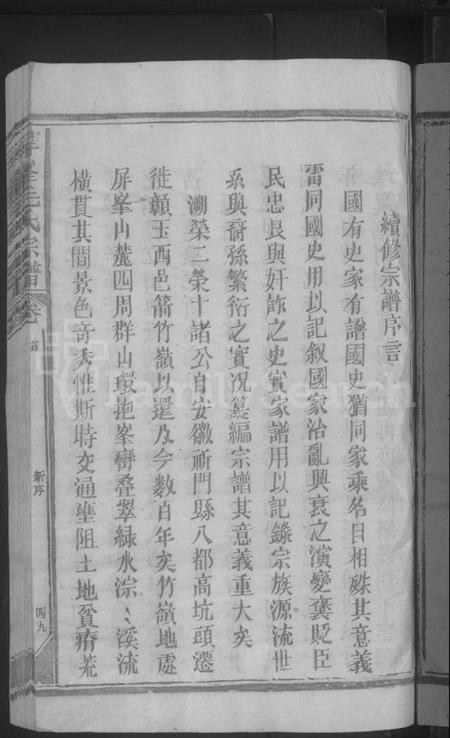 續修宗譜序言
國有史家有譜國史猶同家乘名目相殊其意義
雷同國史用以記叙國家治亂興衰之演變褒貶臣
民忠良與奸詐之史實家譜用以記錄宗族源流世
系與裔孫繁衍之實况纂編宗譜其意義重大矣
溯榮二榮十諸公自安徽祈門縣八都高坑頭遷
徙贛玉西邑箭竹嶺以還及今数百年矣竹嶺地處
屏峯山麓四周群山環抱峯巒叠翠緑水淙〻溪流
横貫其間景色奇秀惟斯時交通壅阻土地貧瘠荒
氏宗譜
卷
首
新序
四九
FamilySearch